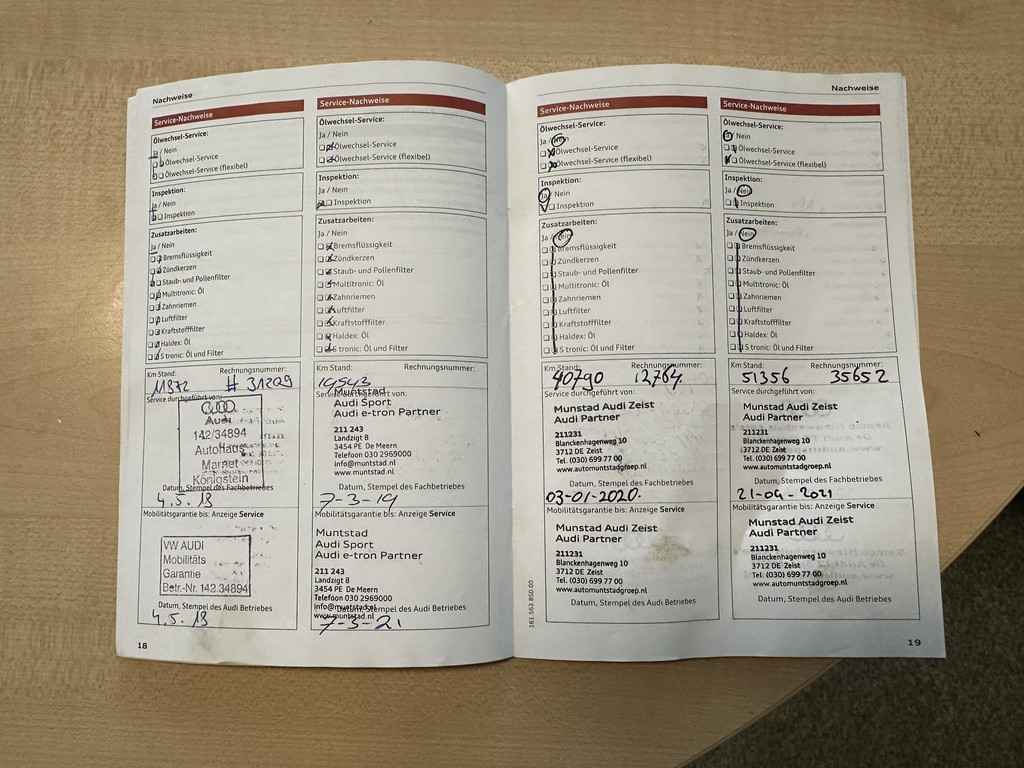 Nachweise
Service-Nachweise
Ölwechsel-Service:
Ja / Nein
Ölwechsel-Service
Ölwechsel-Service (flexibel)
Inspektion:
Ja / Nein
Inspektion
Zusatzarbeiten:
Ja / Nein
Bremsflüssigkeit
Zündkerzen
Staub- und Pollenfilter
Multitronic: Öl
Zahnriemen
Luftfilter
Kraftstofffilter
Haldex: Öl
S tronic: Öl und Filter
Km Stand: Rechnungsnummer:
11872 # 31209
Service durchgeführt von:
Audi
142/34894
Autohaus
Marnet
Königstein
Datum, Stempel des Fachbetriebes
4.5.18
Mobilitätsgarantie bis: Anzeige Service
VW AUDI
Mobilitäts
Garantie
Betr.-Nr. 142.34894
Datum, Stempel des Audi Betriebes
4.5.18
18
Service-Nachweise
Ölwechsel-Service:
Ja / Nein
Ölwechsel-Service
Ölwechsel-Service (flexibel)
Inspektion:
Ja / Nein
Inspektion
Zusatzarbeiten:
Ja / Nein
Bremsflüssigkeit
Zündkerzen
Staub- und Pollenfilter
Multitronic: Öl
Zahnriemen
Luftfilter
Kraftstofffilter
Haldex: Öl
S tronic: Öl und Filter
Km Stand: Rechnungsnummer:
19543
Service durchgeführt von:
Muntstad
Audi Sport
Audi e-tron Partner
211 243
Landzigt 8
3454 PE De Meern
Telefoon 030 2969000
info@muntstad.nl
www.muntstad.nl
Datum, Stempel des Fachbetriebes
7-3-19
Mobilitätsgarantie bis: Anzeige Service
Muntstad
Audi Sport
Audi e-tron Partner
211 243
Landzigt 8
3454 PE De Meern
Telefoon 030 2969000
info@muntstad.nl
Datum, Stempel des Audi Betriebes
www.muntstad.nl
7-3-21
Nachweise
Service-Nachweise
Ölwechsel-Service:
Ja / Nein
Ölwechsel-Service
Ölwechsel-Service (flexibel)
Inspektion:
Ja / Nein
Inspektion
Zusatzarbeiten:
Ja / Nein
Bremsflüssigkeit
Zündkerzen
Staub- und Pollenfilter
Multitronic: Öl
Zahnriemen
Luftfilter
Kraftstofffilter
Haldex: Öl
S tronic: Öl und Filter
Km Stand: Rechnungsnummer:
40790 12764
Service durchgeführt von:
Munstad Audi Zeist
Audi Partner
211231
Blanckenhagenweg 10
3712 DE Zeist
Tel. (030) 699 77 00
www.automuntstadgroep.nl
Datum, Stempel des Fachbetriebes
03-01-2020.
Mobilitätsgarantie bis: Anzeige Service
Munstad Audi Zeist
Audi Partner
211231
Blanckenhagenweg 10
3712 DE Zeist
Tel. (030) 699 77 00
www.automuntstadgroep.nl
Datum, Stempel des Audi Betriebes
161.563.850.00
Service-Nachweise
Ölwechsel-Service:
Ja / Nein
Ölwechsel-Service
Ölwechsel-Service (flexibel)
Inspektion:
Ja / Nein
Inspektion
Zusatzarbeiten:
Ja / Nein
Bremsflüssigkeit
Zündkerzen
Staub- und Pollenfilter
Multitronic: Öl
Zahnriemen
Luftfilter
Kraftstofffilter
Haldex: Öl
S tronic: Öl und Filter
Km Stand: Rechnungsnummer:
51356 35652
Service durchgeführt von:
Munstad Audi Zeist
Audi Partner
211231
Blanckenhagenweg 10
3712 DE Zeist
Tel. (030) 699 77 00
www.automuntstadgroep.nl
Datum, Stempel des Fachbetriebes
21-04-2021
Mobilitätsgarantie bis: Anzeige Service
Munstad Audi Zeist
Audi Partner
211231
Blanckenhagenweg 10
3712 DE Zeist
Tel. (030) 699 77 00
www.automuntstadgroep.nl
Datum, Stempel des Audi Betriebes
19